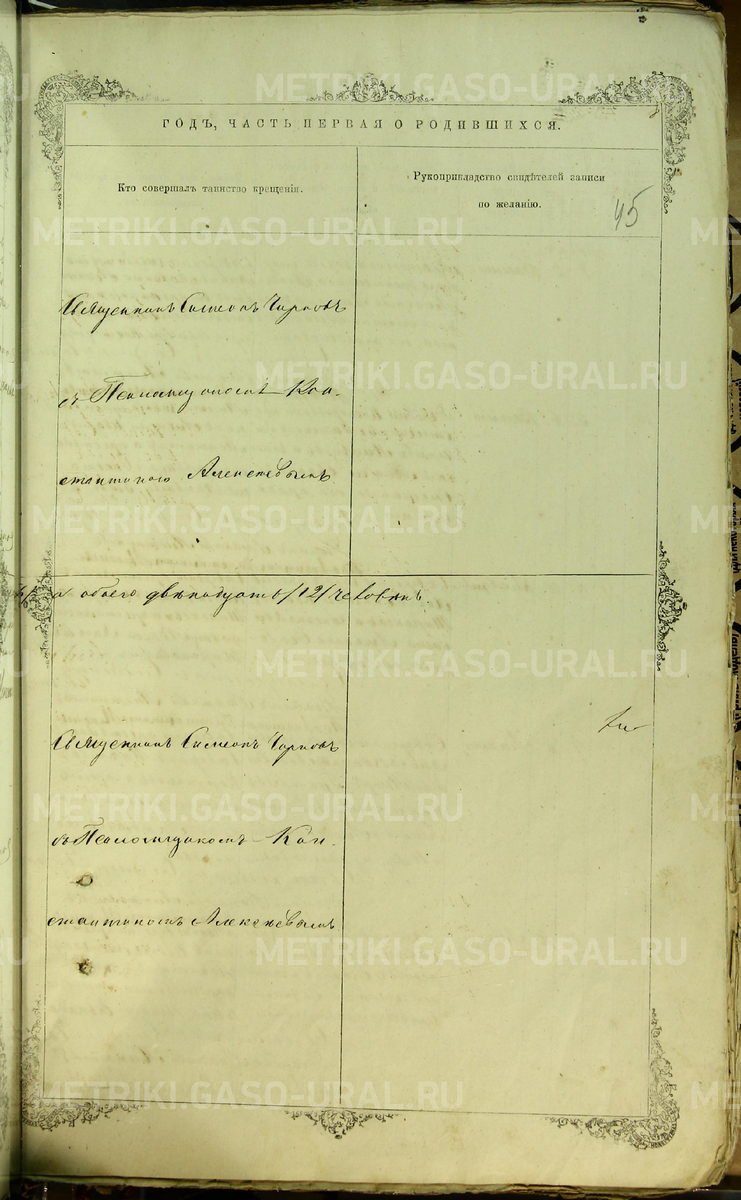 ГОДЪ, ЧАСТЬ ПЕРВАЯ О РОДИВШИХСЯ.
Кто совершалъ таинство крещенія.
Рукоприкладство свидѣтелей записи
по желанію.
45
Священникъ Симеонъ
съ Псаломщикомъ Кон-
стантиномъ Алексѣевымъ
а обоего двѣнадцать /12/ человѣкъ.
Священникъ Симеонъ
съ Псаломщикомъ Кон-
стантиномъ Алексѣевымъ
METRIKI.GASO-URAL.RU